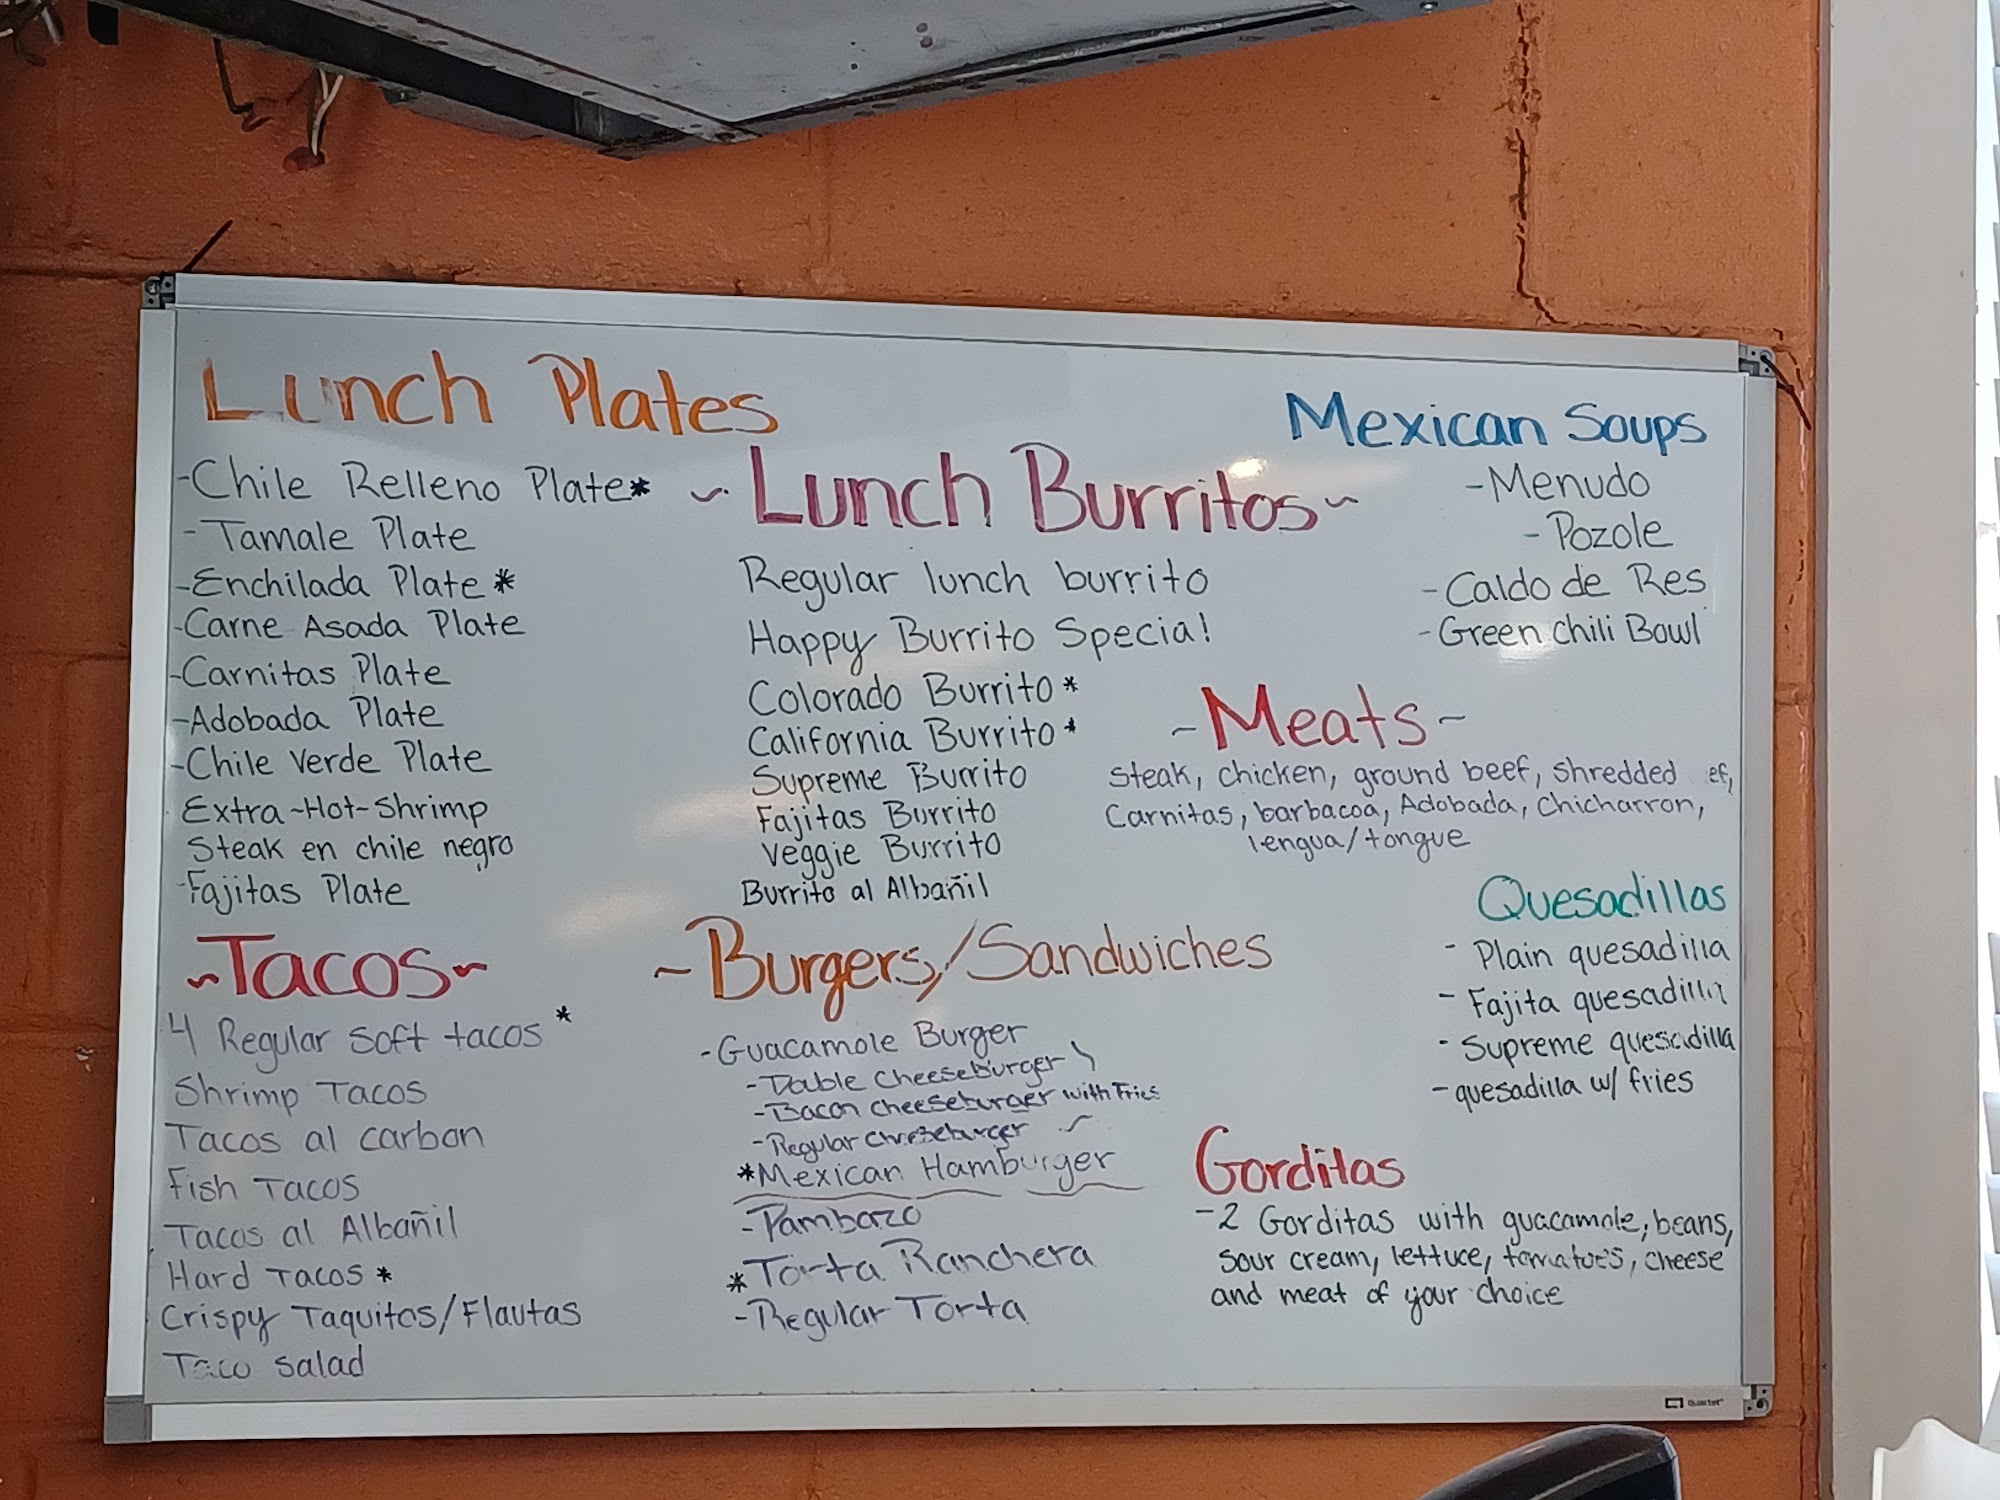 Lunch Plates
-Chile Relleno Plate*
-Tamale Plate
-Enchilada Plate*
-Carne Asada Plate
-Carnitas Plate
-Adobada Plate
-Chile Verde Plate
Extra-Hot-Shrimp
Steak en chile negro
-Fajitas Plate
~Tacos~
4 Regular soft tacos *
Shrimp Tacos
Tacos al carbon
Fish Tacos
Tacos al Albañil
Hard Tacos *
Crispy Taquitos/Flautas
Taco salad
~Lunch Burritos~
Regular lunch burrito
Happy Burrito Special
Colorado Burrito*
California Burrito*
Supreme Burrito
Fajitas Burrito
Veggie Burrito
Burrito al Albañil
~Burgers/Sandwiches
-Guacamole Burger
-Double Cheeseburger
-Bacon Cheeseburger with Fries
-Regular Cheeseburger
*Mexican Hamburger
-Pambazo
*Torta Ranchera
-Regular Torta
Mexican Soups
-Menudo
-Pozole
-Caldo de Res
-Green Chili Bowl
~Meats~
Steak, chicken, ground beef, shredded ef,
Carnitas, barbacoa, Adobada, Chicharron,
lengua/tongue
Quesadillas
- Plain quesadilla
- Fajita quesadilla
- Supreme quesadilla
- quesadilla w/ fries
Gorditas
-2 Gorditas with guacamole, beans,
sour cream, lettuce, tomatoes, cheese
and meat of your choice
Quartet